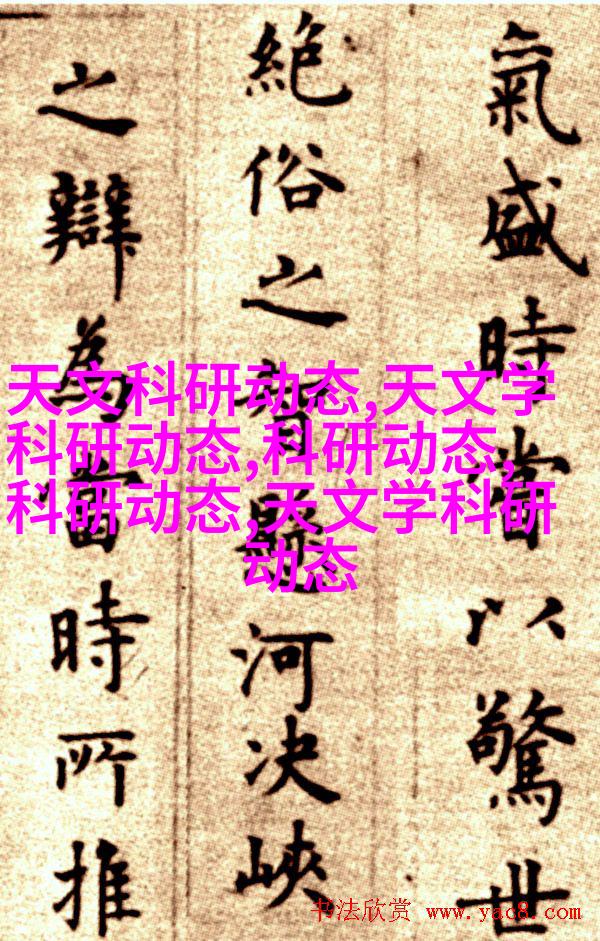 氣盛時嘗以驚世
絶俗之智騁河决峽
之辯為當時所推
天文科研动态,天文学
科研动态,科研动态,
科研动态,天文学科研
动态
书法欣赏 www.yac8.com